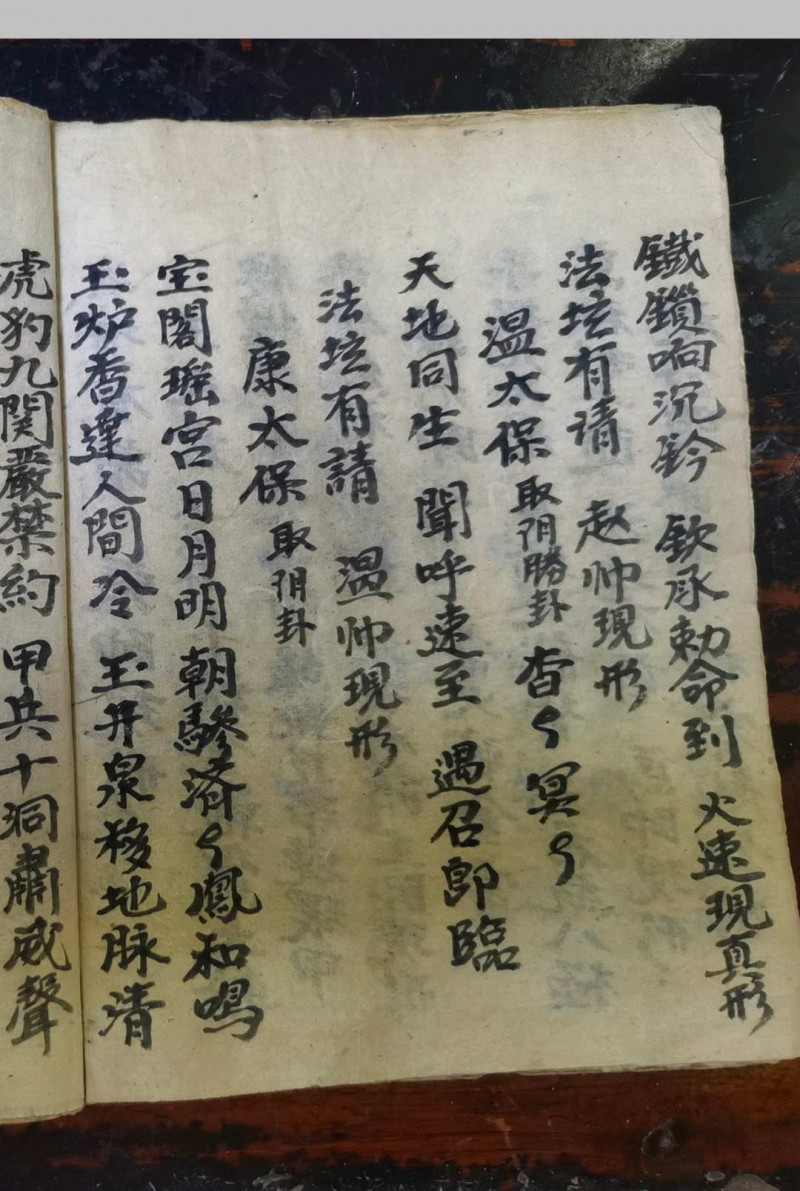 鐵鎖响沉鈐 欽承勅命到 火速現真形
法坛有请 赵帅現形
温太保 取阴勝卦 杳々冥々
天地同生 聞呼速至 遇召即臨
法坛有請 温帅現形
康太保 取阴卦
宝閣瑶宫日月明 朝驂済々鳳和鳴
玉炉香達人間冷 玉井泉移地脉清
虎豹九関嚴禁約 甲兵十洞肅威聲